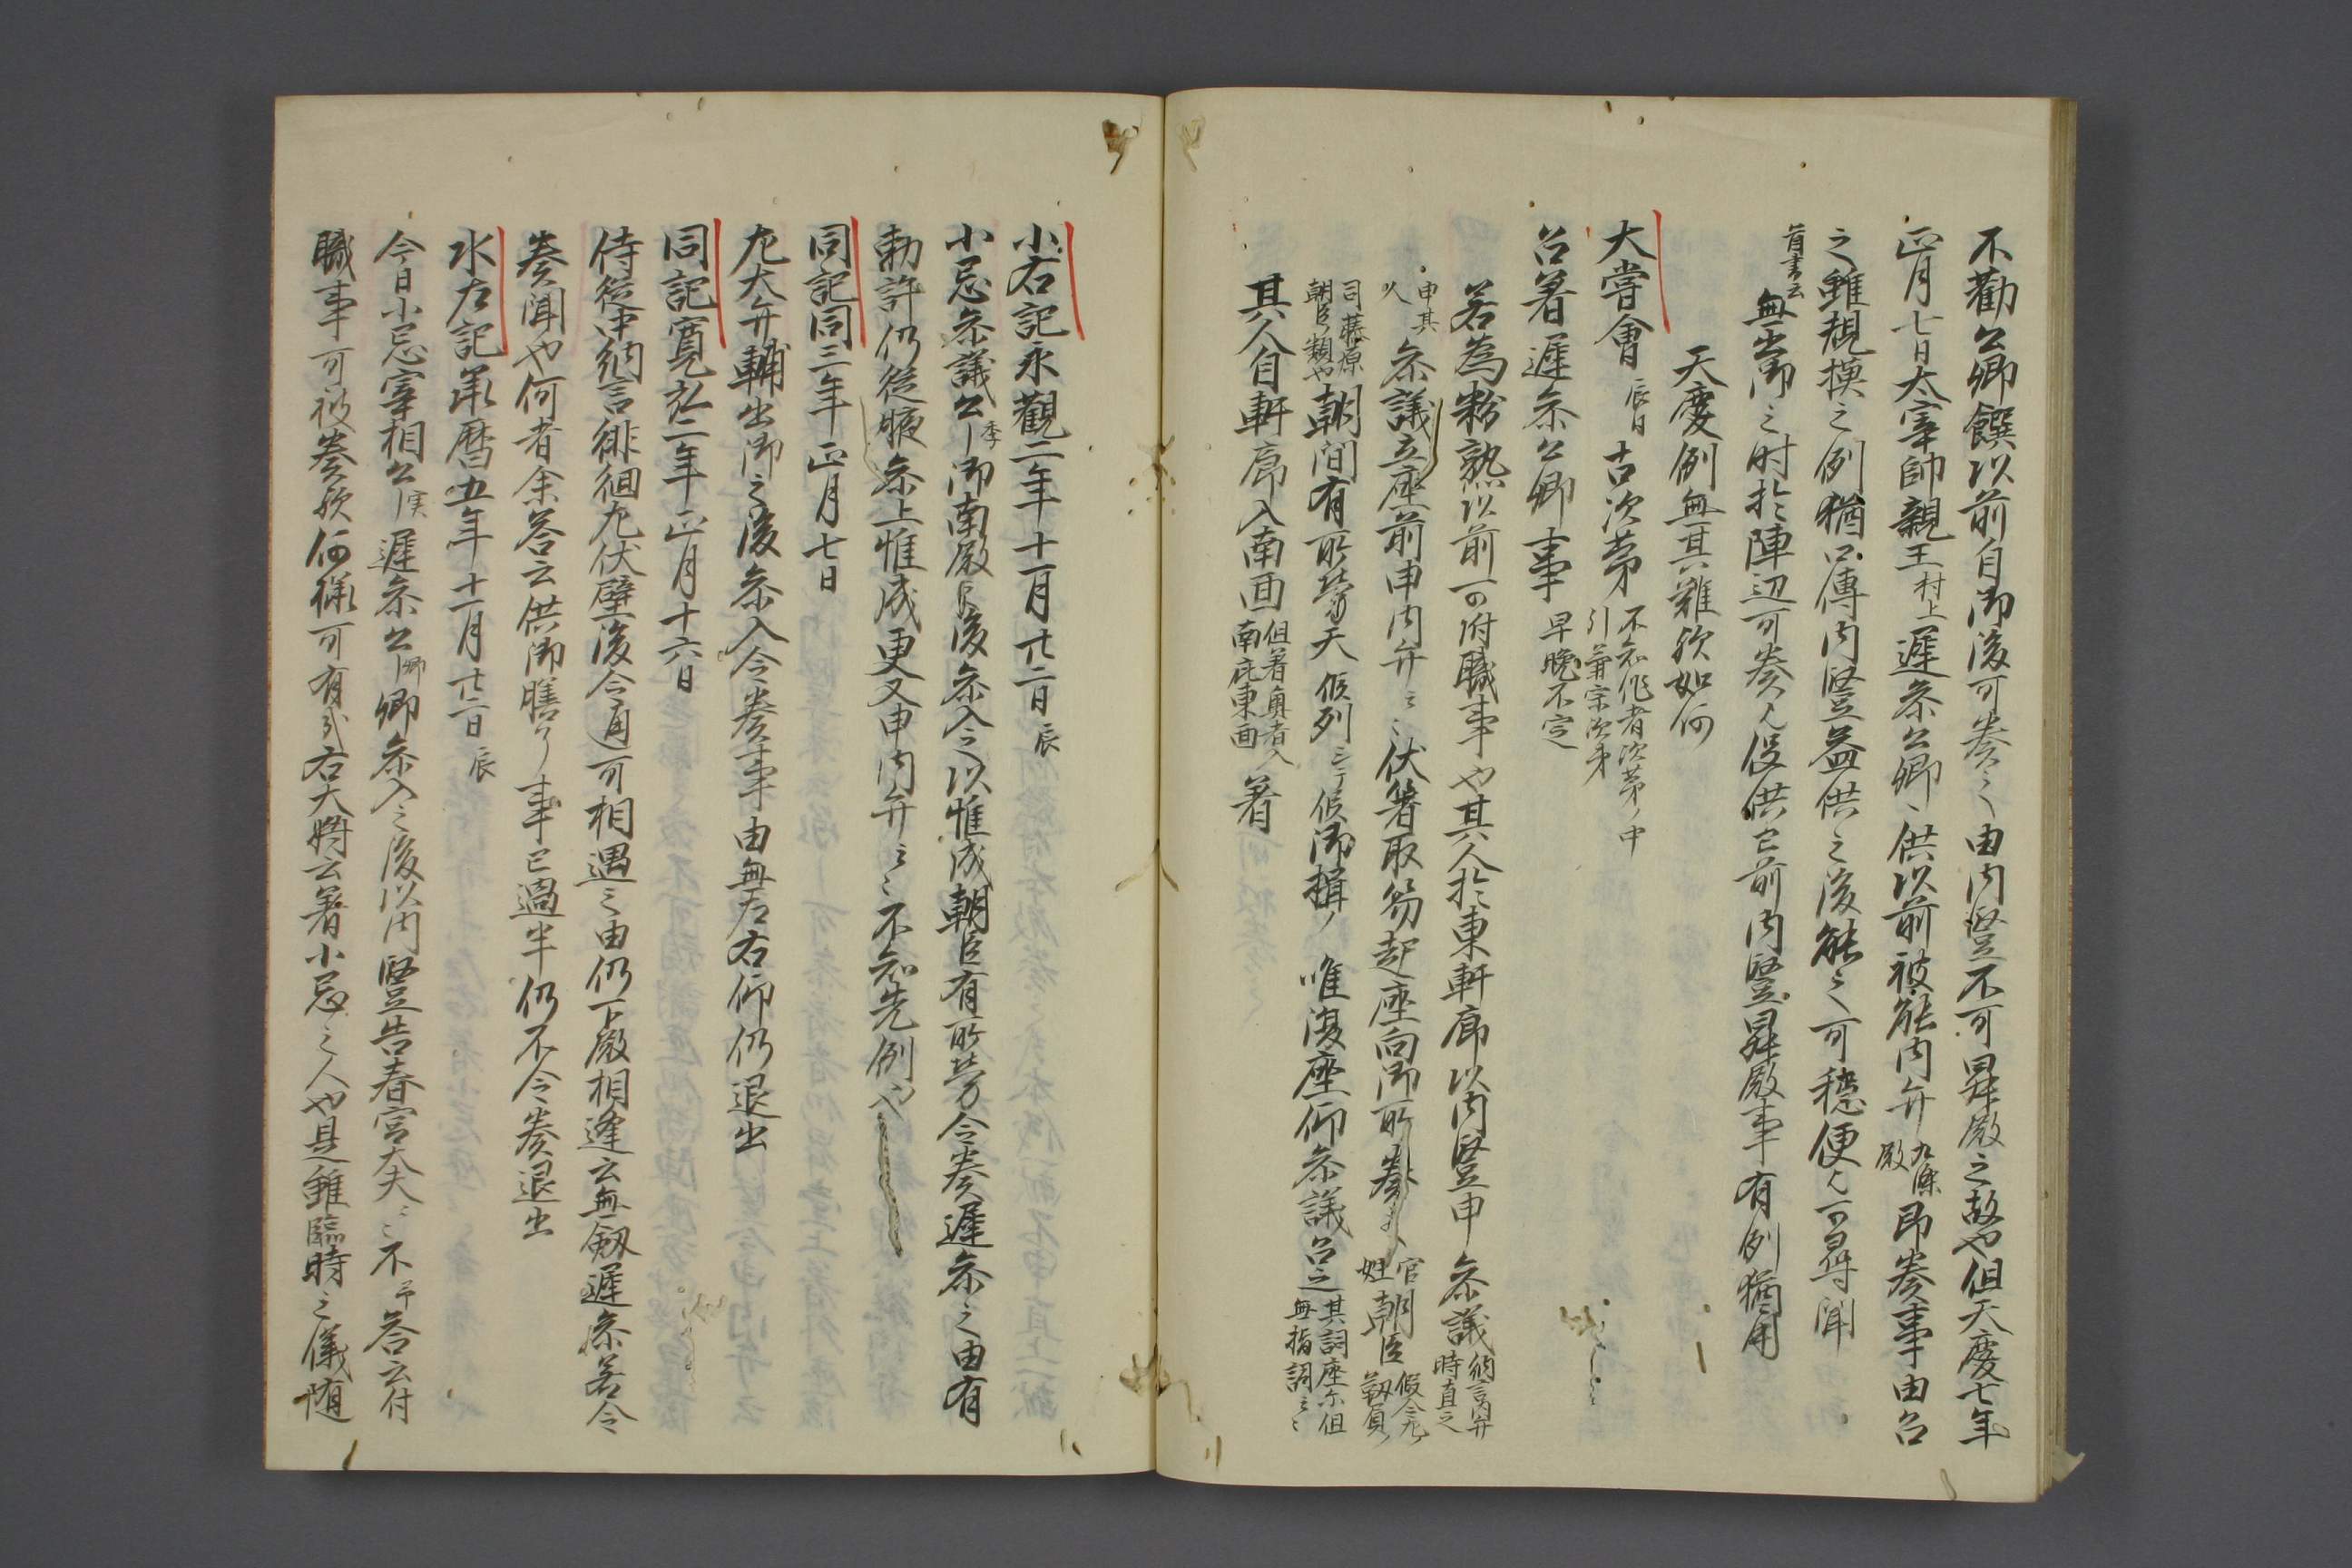 不勸公卿饌以前自御後可奏之由内竪不可昇殿之故也但天慶七年
正月七日太宰帥親王村上遅参公卿、供以前被触内弁九條殿即奏事由召
之雖規摸之例猶只傳内竪益供之後触之可穏便又可尋聞
首書云
無出御之時於陣辺可奏又役供已前内竪昇殿事有例猶用
天慶例無其難欤如何
大嘗會辰日古次第不知作者次第ノ中引兼宗次第
召著遅参公卿事早晩不定
若為粉熟以前可付職事也其人於東軒廊以内竪申参議納言内弁時直之
申其人参議立座前申内弁ミミ伏箸取笏起座向御所奏官姓朝臣假令左靱負
司藤原朝臣類也朝間有所勞天候列ミ候御揖唯復座仰参議召之其詞座尓但無指詞云々
其人自軒廊入南面但著奥者入南庇東面著
小右記永觀二年十一月廿二日辰
小忌参議公季御南殿後参入令以惟成朝臣有所勞令奏遅参之由有
勅許仍從腋参上惟成更又申内弁ミミ不知先例也
同記同三年正月七日
左大弁輔出御之後参入令奏事由無左右仰仍退出
同記寛弘二年正月十六日
侍從中納言徘徊左伏壁後令通可相遇之由仍下殿相逢云無劔遅参若令
奏聞也何者余答云供御膳了事已過半仍不令奏退出
水左記承暦五年十一月廿二日辰
今日小忌宰相公実遅参公卿参入之後以内竪告春宮大夫ミミ不予答云付
職事可被奏欤何様可有哉右大將云著小忌之人也是雖臨時之儀随